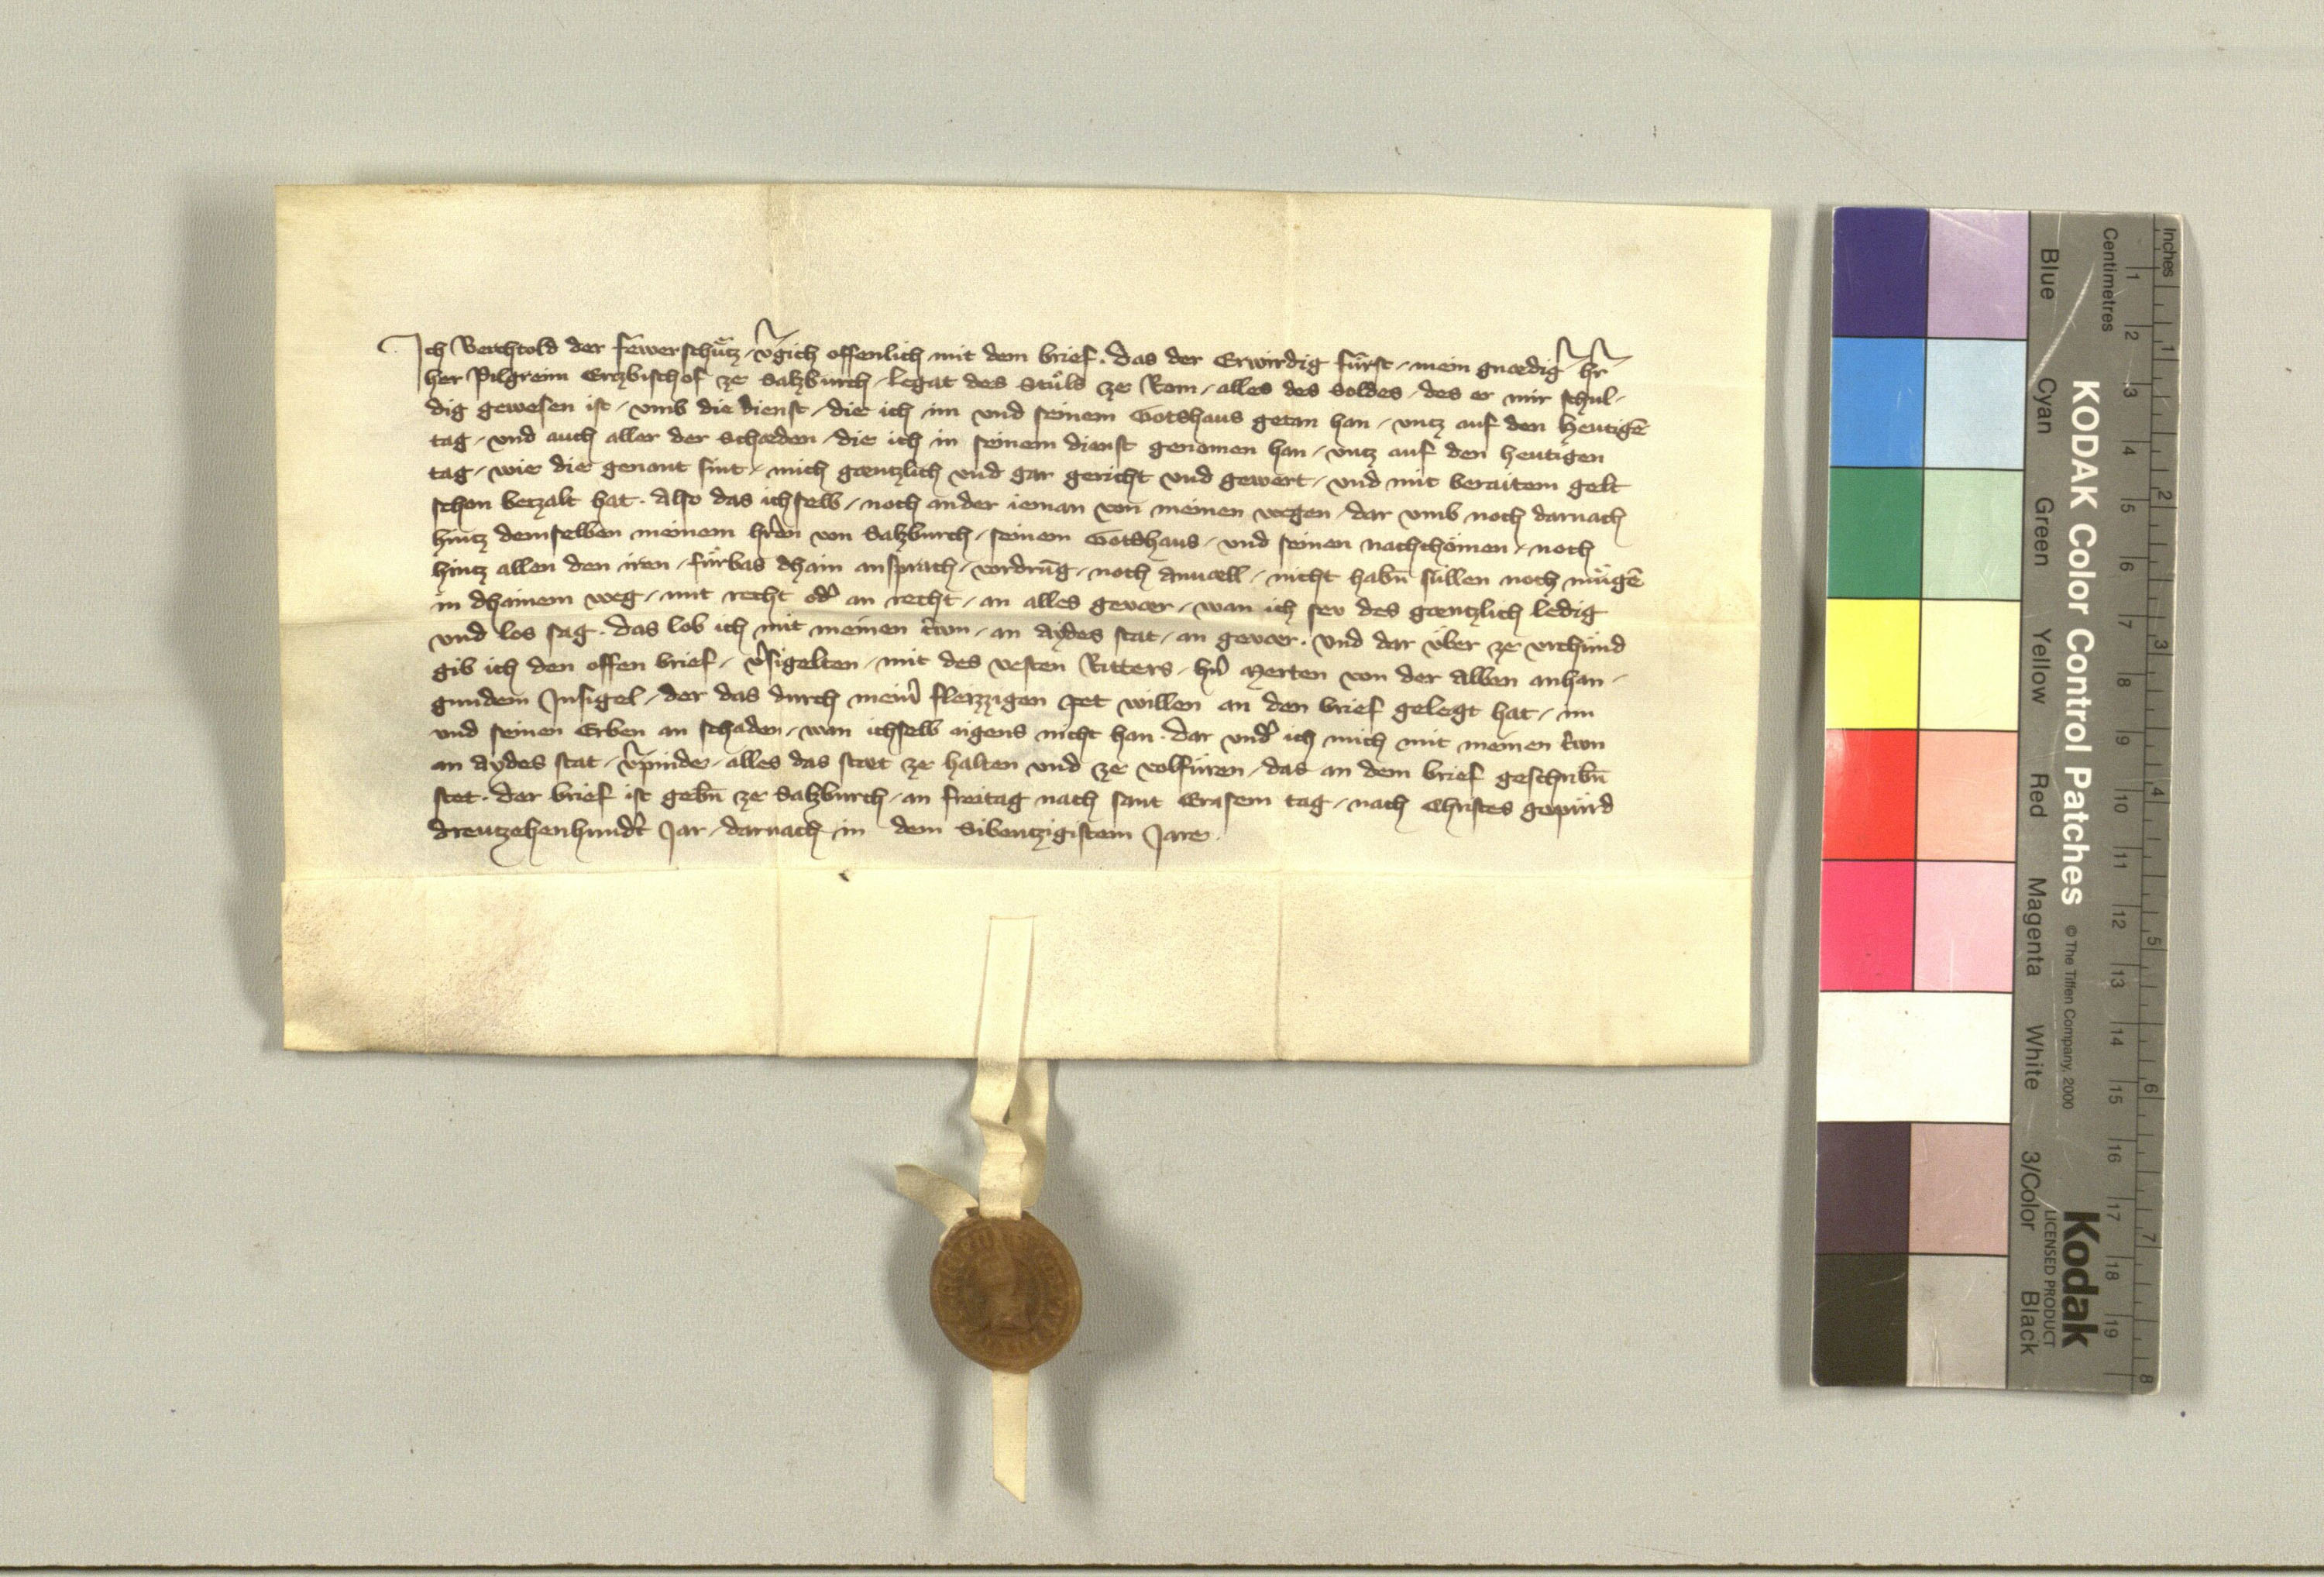 Ich Berchtold der fewerschütz / v̂gich offenlich mit dem brief. Das der Erwirdig fürst / mein gnædig̑ hȓ
her Pilgreim Ertzbischof ze Salzburch / legat des Stůls ze Rom / alles des Soldes / des er mir schul-
dig gewesen ist / vmb die dienst / die ich im vnd seinem Gotshaus getan han / vntz auf den heutigē
tag / vnd auch aller der schæden / die ich in seinem dienst genomen han / vntz auf den heutigen
tag / wie die genant sint / mich gæntzlich vnd gar gericht vnd gewert / vnd mit beraitem gelt
schon betzalt hat. Also das ichselb / noch ander ieman von meinen wegen / dar vmb noch darnach
hintz demselben meinem hr̂en von Salzburch / seinem Gotshaus / vnd seinen nachchömen / noch
hintz allen den iren / fürbas dhain ansprach / vordrūg / noch anuæll / nicht habn̄ süllen noch mügē
in dhainem weg / mit recht od̂ an recht / an alles geuær / wan ich sev des gæntzlich ledig
vnd los sag. Das lob ich mit meinen tr̂wn / an aydes stat / an geuær. Vnd dar über ze vrchünd
gib ich den offen brief / v̂sigelten / mit des vesten Ritters / hn̂ Merten von der Alben anhan-
gundem Insigel / der das durch mein̂ fleizzigen pet willen an den brief gelegt hat / im
vnd seinen Erben an schaden / wan ichselb aigens nicht han. Dar vnd̂ ich mich mit meinen tr̂wn
an aydes stat / v̂pinde / alles das stæt ze halten vnd ze volfüren / das an dem brief geschribn̄
stet. Der brief ist gebn̄ ze Salzburch / an freitag nach sant Erasem tag / nach Christes gepürd
dreutzehenhund̂t Jar / darnach in dem Sibentzigistem Jare.
Inches
Centimetres
1 2 3 4 5 6 7 8
1 2 3 4 5 6 7 8 9 10 11 12 13 14 15 16 17 18 19
KODAK Color Control Patches © The Tiffen Company, 2000
Kodak
LICENSED PRODUCT
Blue Cyan Green Yellow Red Magenta White 3/Color Black